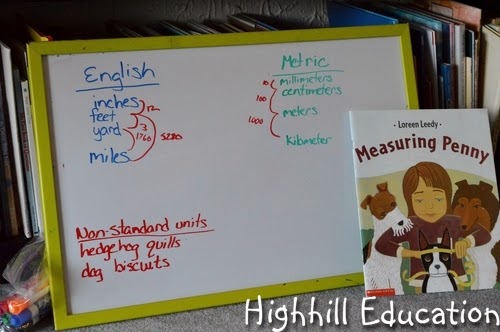 Highhill Education
English
inches
feet
yard
miles
12
3
1760
5280
Metric
millimeters
centimeters
meters
kilometer
10
100
1000
Non-standard units
hedgehog quills
dog biscuits
• Loreen Leedy •
Measuring Penny